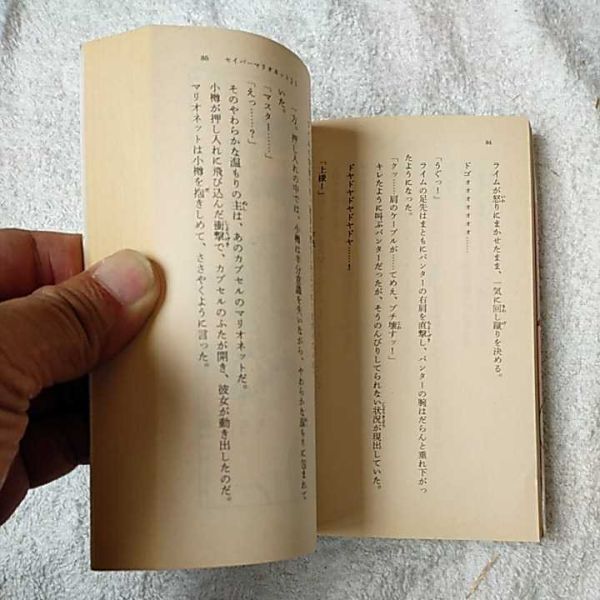 84
ライムが怒りにまかせたまま、一気に回し蹴りを決める。
ドゴオオオオオオオ……
「うぐっ!」
ライムの足先はまともにパンターの右肩を直撃し、パンターの腕はだらんと垂れ下がっ
たようになった。
「クッ……肩のケーブルが……てめえ、ブチ壊すッ!」
キレたように叫ぶパンターだったが、そうのんびりしてられない状況が現出していた。
ドヤドヤドヤドヤドヤ……!
「上様!」
85 セイバーマリオネットJ
一方、押し入れの中では、小樽は半分意識を失いながら、やわらかな温もりに包まれて
いた。
「マスター……」
「えっ……?」
そのやわらかな温もりの主は、あのカプセルのマリオネットだ。
小樽が押し入れに飛び込んだ衝撃で、カプセルのふたが開き、彼女が動き出したのだ。
マリオネットは小樽を抱きしめて、ささやくように言った。